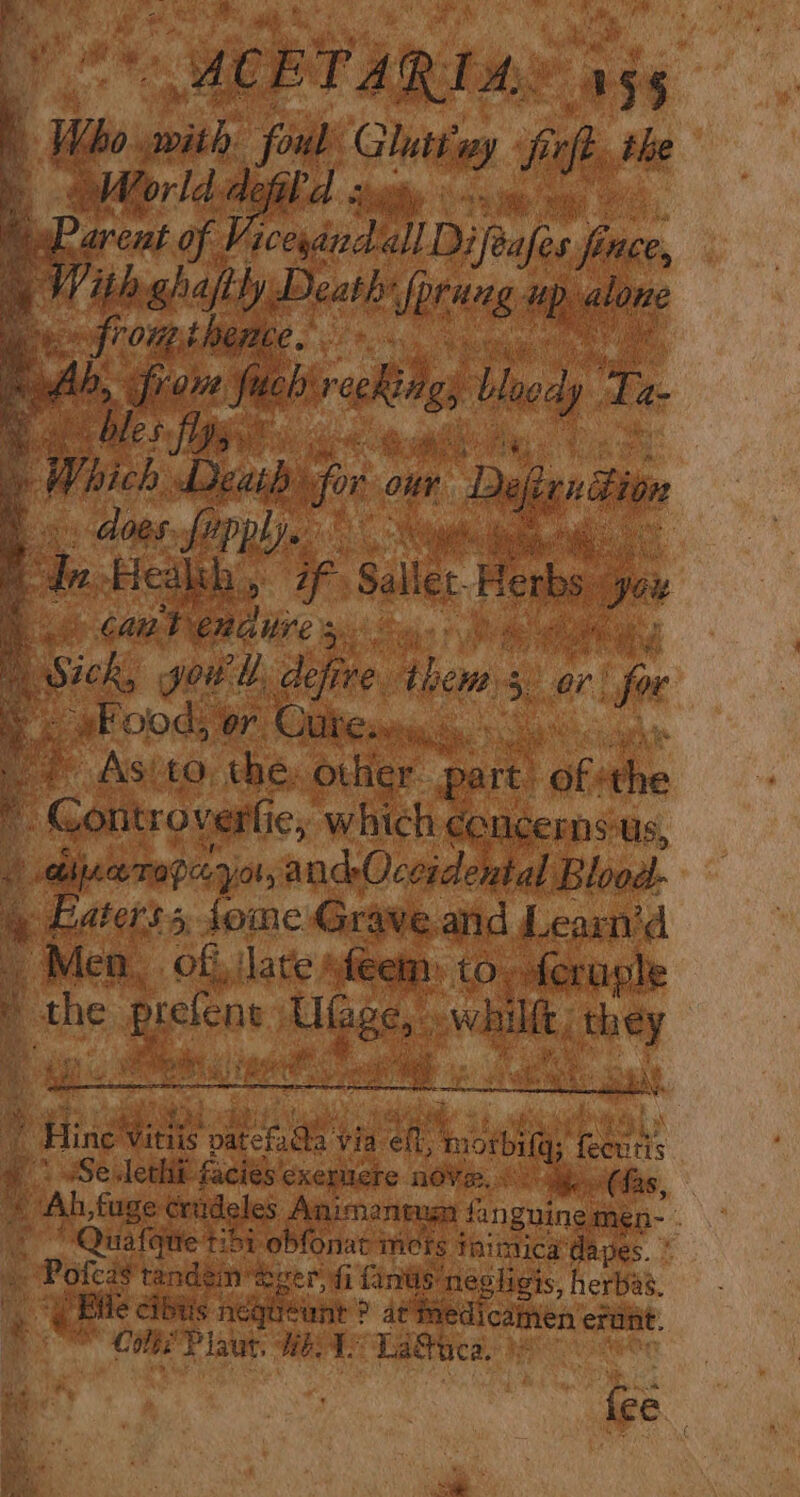 ACETARIA. 155
Who with foul Glutt'ny firſt the
World defil'd :
Parent of Vice, and all Diſeaſes ſince,
With ghaſtly Death ſprung up alone
from thence.
Ah, from ſuch reeking, bloody Ta-
bles fly,
Which Death for our Deſtruction
does ſupply.
In Health, if Sallet-Herbs you
can't endure ;
Sick, you'll deſire them ; or for
Food, or Cure.
As to the other part of the
Controverſie, which concerns us,
and Occidental Blood-
Eaters ; ſome Grave and Learn'd
Men of late ſeem to ſcruple
the preſent Uſage, whilſt they
Hinc Vitiis patefacta via eſt, morbiſq; ſecutis
Se lethi facies exeruere novæ. (fas,
Ah, fuge crudeles Animantum ſanguine men-
Quaſque tibi obſonat mors inimica dapes.
Poſcas tandem æger, ſi ſanus negligis, herbas.
Eſſe cibus nequeunt ? at medicamen erunt.
Plaut. lib. 1. Lactuca.
ſee